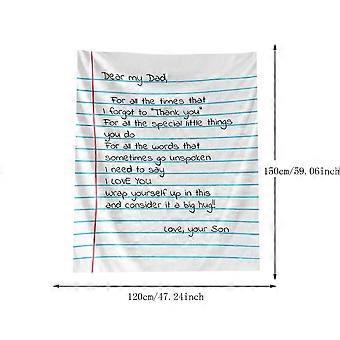 Dear my Dad,
For all the times that
I forgot to "Thank you"
For all the special little things
you do
For all the words that
sometimes go unspoken
I need to say
I LOVE YOU
Wrap yourself up in this
and consider it a big hug!!
Love, your Son
150cm/59.06inch
120cm/47.24inch